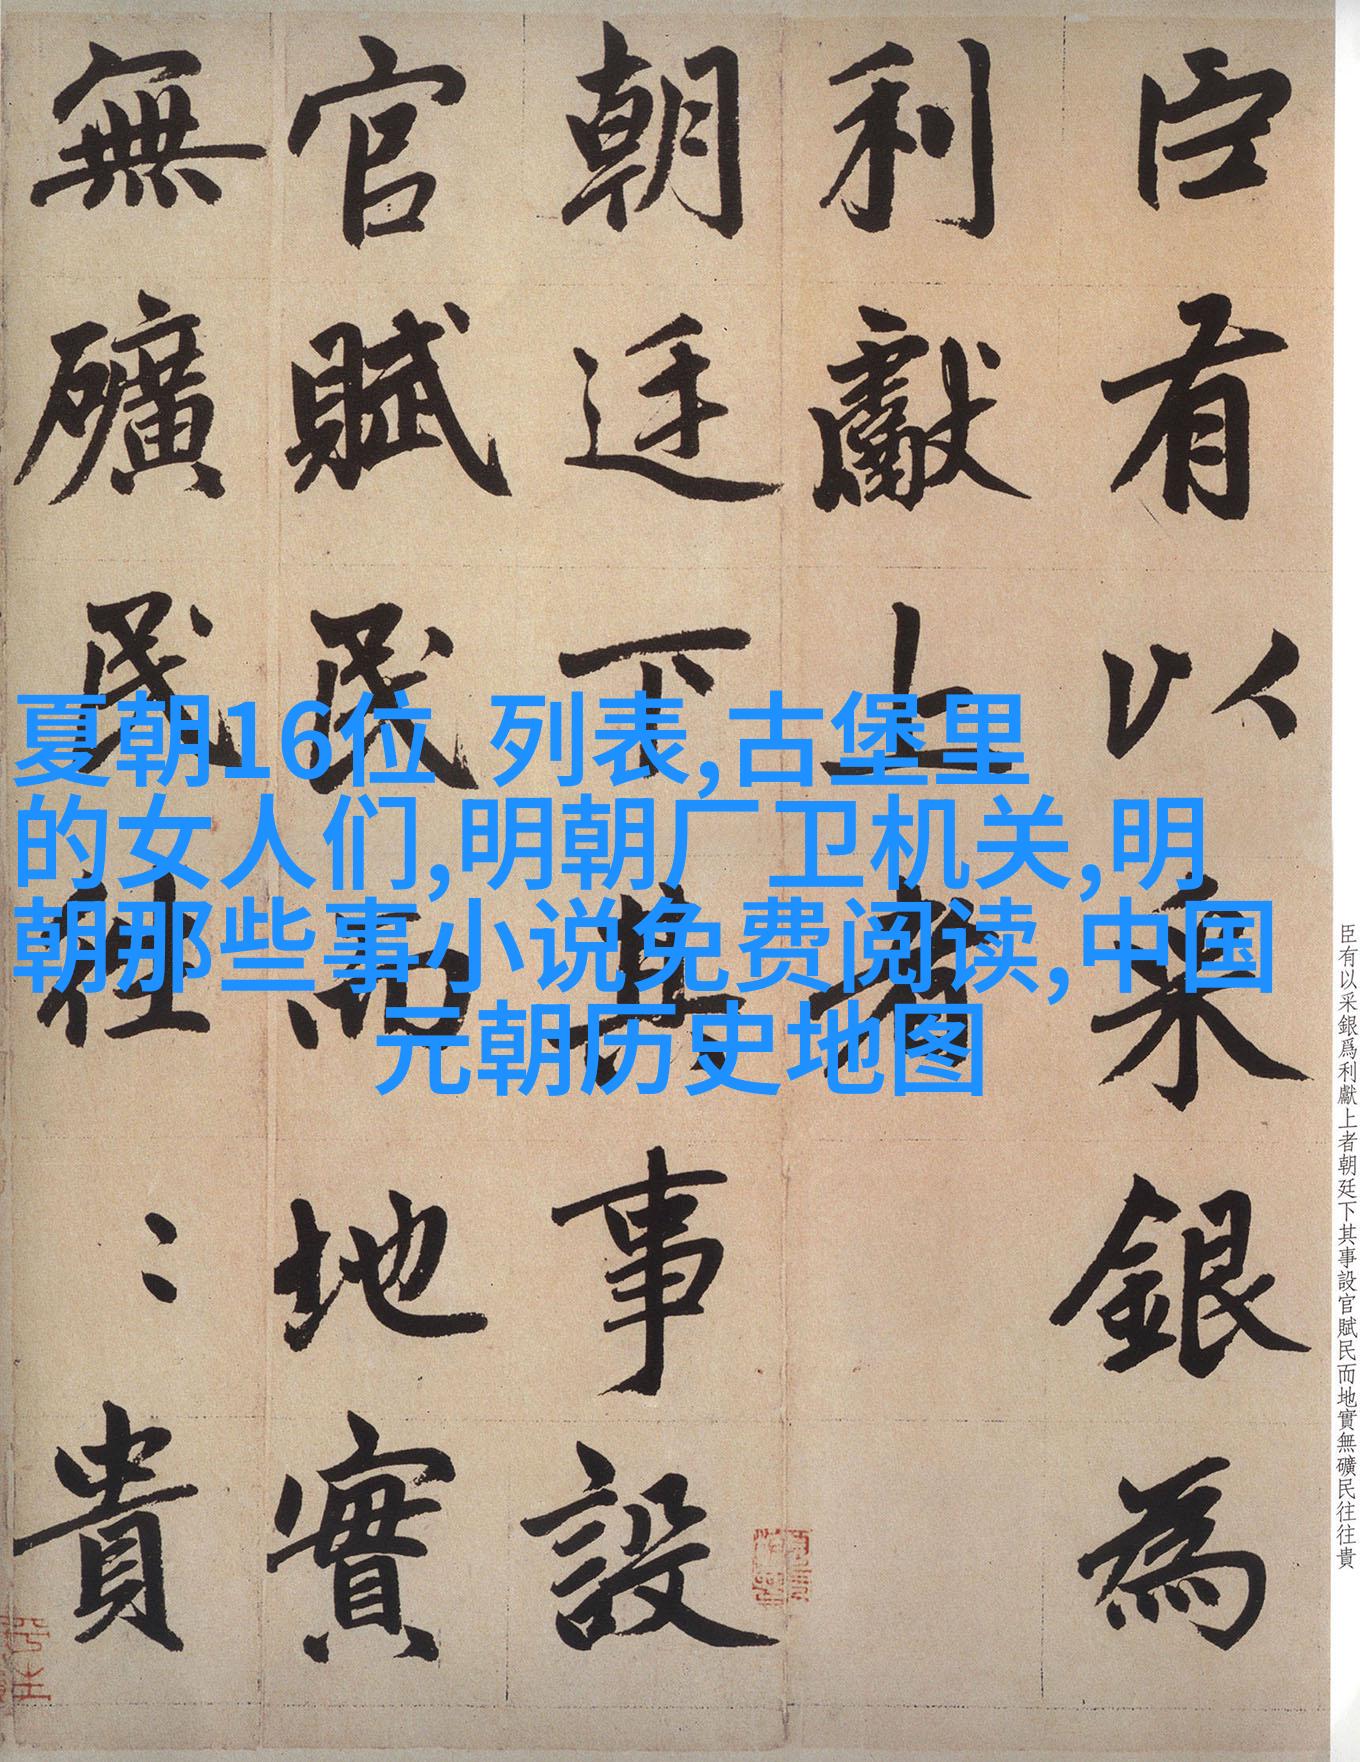 臣有以采銀爲利獻上者朝廷下其事設官賦民而地實無礦民往往貴
臣有以采銀為
利獻上者
朝廷下其事設
官賦民而地實
無礦民往〻貴
夏朝16位 列表,古堡里
的女人们,明朝厂卫机关,明
朝那些事小说免费阅读,中国
元朝历史地图